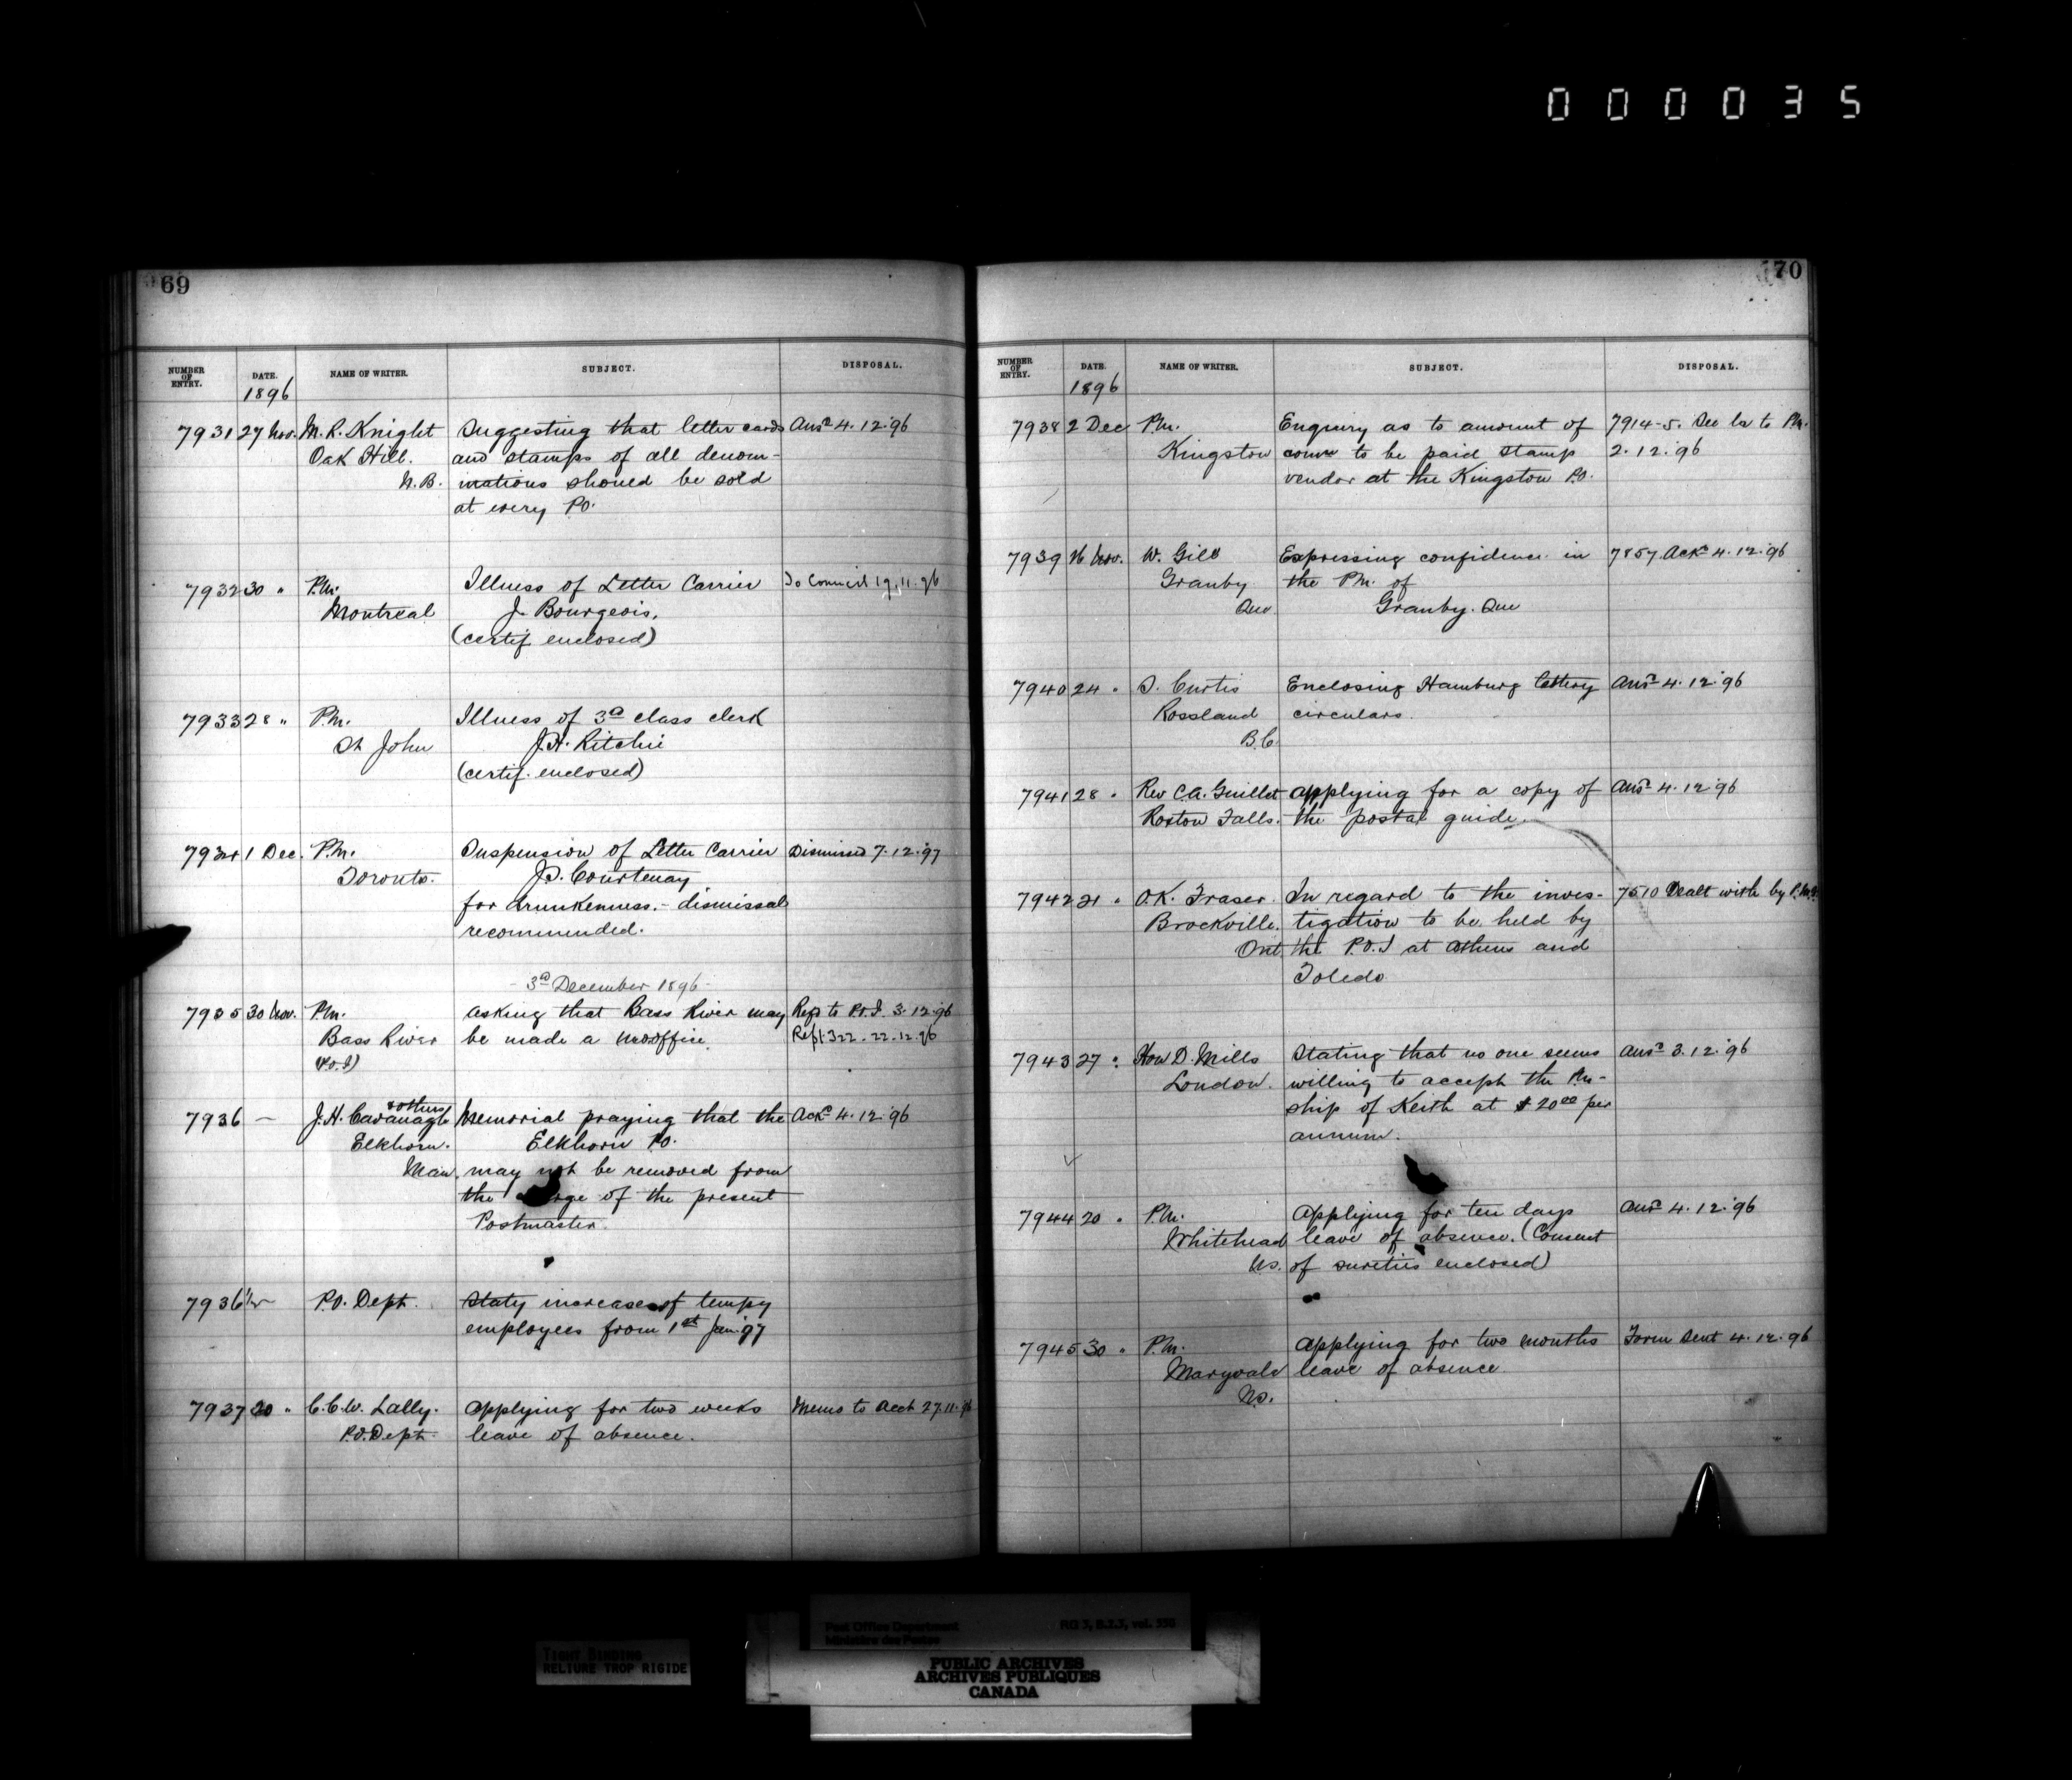 000035
69
NUMBER OF ENTRY.
DATE.
NAME OF WRITER.
SUBJECT.
DISPOSAL.
1896
7931 27 Nov. M. R. Knight Suggesting that letter cards Ansd 4.12.'96
Oak Hill. and stamps of all denom-
N.B. inations should be sold
at every P.O.
7932 30 " P.M. Illness of Letter Carrier To Council 19.11.96
Montreal J. Bourgeois.
(certif enclosed)
7933 28 " P.M. Illness of 3d class clerk
St John J.H. Ritchie
(certif. enclosed)
7934 1 Dec. P.M. Suspension of Letter Carrier Dismissed 7.12.97
Toronto. J.J. Courtenay
for drunkenness.- dismissal
recommended.
- 3d December 1896 -
7935 30 Nov. P.M. asking that Bass River may Refd to P.O.I. 3.12.96
Bass River be made a m.o.office. Rept 322-22.12.96
(P.O.I)
& others
7936 — J.H. Cavanagh Memorial praying that the Ackd 4.12.'96
Elkhorn. Elkhorn P.O.
Man. may not be removed from
the charge of the present
Postmaster.
7936½ — P.O. Dept. Staty increase of tempy
employees from 1st Jan '97
7937 20 " C.C.W. Lally. Applying for two weeks Memo to Acct 27.11.96
P.O. Dept. leave of absence.
70
NUMBER OF ENTRY.
DATE.
NAME OF WRITER.
SUBJECT.
DISPOSAL.
1896
7938 2 Dec P.M. Enquiry as to amount of 7914-5. See lr to P.M.
Kingston comn to be paid stamp 2.12.'96
vendor at the Kingston P.O.
7939 26 Nov. W. Gill Expressing confidence in 7857. Ackd 4.12.'96
Granby the P.M. of
Que Granby. Que
7940 24 " J. Curtis Enclosing Hamburg lottery Ansd 4.12.'96
Rossland circulars.
B.C.
7941 28 " Rev C.A. Guillet applying for a copy of Ansd 4.12.'96
Roxton Falls. the postal guide.
7942 21 " O.K. Fraser. In regard to the inves- 7510 Dealt with by P.M.G.
Brockville. tigation to be held by
Ont the P.O.I at Athens and
Toledo
7943 27 " Hon D. Mills Stating that no one seems Ansd 3.12.'96
London. willing to accept the Pm-
ship of Keith at $20.00 per
annum.
7944 20 " P.M. Applying for ten days Ansd 4.12.'96
Whitehead leave of absence. (Consent
N.S. of sureties enclosed)
7945 30 " P.M. Applying for two months Form sent 4.12.96
Maryvale leave of absence
N.S.
Post Office Department RG 3, B.2.3, vol. 556
Ministère des Postes
TIGHT BINDING
RELIURE TROP RIGIDE
PUBLIC ARCHIVES
ARCHIVES PUBLIQUES
CANADA